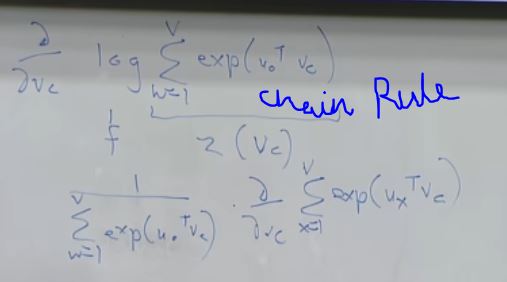 ∂/∂v_c log Σ_{w=1}^{V} exp(u_o^T v_c)
chain Rule
f z(v_c)
1 / Σ_{w=1}^{V} exp(u_o^T v_c) · ∂/∂v_c Σ_{x=1}^{V} exp(u_x^T v_c)